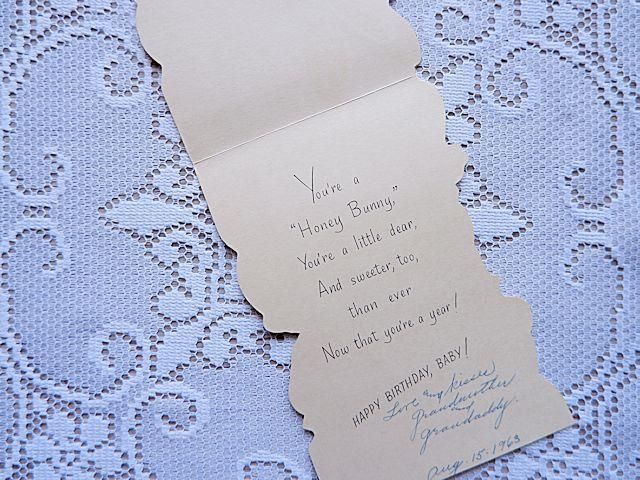 You're a
"Honey Bunny,"
You're a little dear,
And sweeter, too,
than ever
Now that you're a year!
HAPPY BIRTHDAY, BABY!
Love and kisses
Grandmother
and
Grandaddy.
Aug. 15. 1963